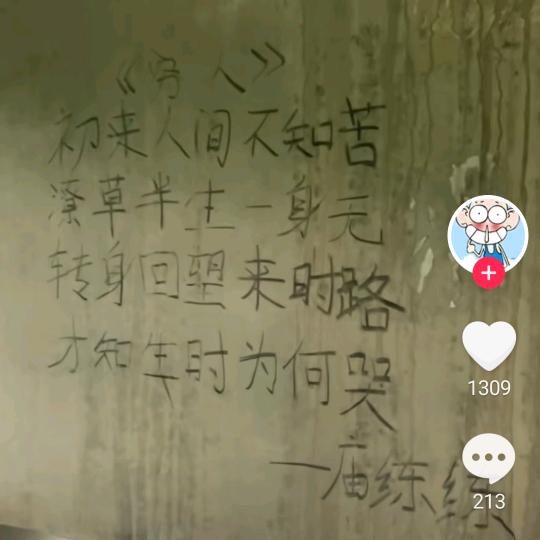 《穷人》
初来人间不知苦
潦草半生一身无
转身回望来时路
才知生时为何哭
一庙练练
1309
213